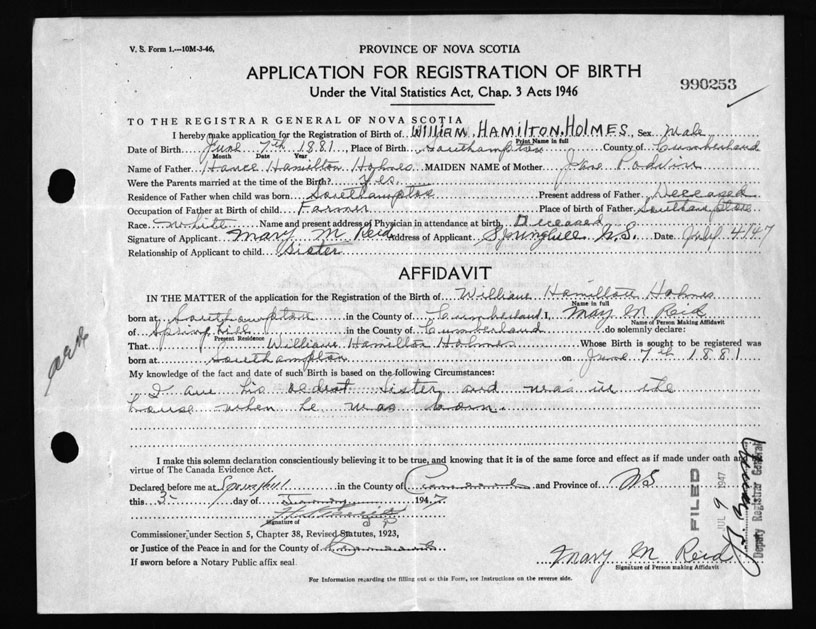 V. S. Form 1.—10M-3-46,
PROVINCE OF NOVA SCOTIA
APPLICATION FOR REGISTRATION OF BIRTH
990253
Under the Vital Statistics Act, Chap. 3 Acts 1946
TO THE REGISTRAR GENERAL OF NOVA SCOTIA
I hereby make application for the Registration of Birth of WILLIAM HAMILTON HOLMES, Sex Male
Print Name in full
Date of Birth June 7th 1881 Place of Birth Southampton County of Cumberland
Month Date Year
Name of Father Hance Hamilton Holmes MAIDEN NAME of Mother Jane
Were the Parents married at the time of the Birth? Yes.
Residence of Father when child was born Southampton Present address of Father Deceased
Occupation of Father at Birth of child Farmer Place of birth of Father Southampton
Race White Name and present address of Physician in attendance at birth Deceased
Signature of Applicant Mary M Reid Address of Applicant Springhill N.S. Date July 4/47
Relationship of Applicant to child Sister
AFFIDAVIT
IN THE MATTER of the application for the Registration of Birth of William Hamilton Holmes
Name in full
born at Southampton in the County of Cumberland I, Mary M Reid
Name of Person Making Affidavit
of Springhill in the County of Cumberland do solemnly declare:
Present Residence
That William Hamilton Holmes Whose Birth is sought to be registered was
born at Southampton on June 7th 1881
My knowledge of the fact and date of such Birth is based on the following Circumstances:
I am his oldest sister and was in the
house when he was born.
I make this solemn declaration conscientiously believing it to be true, and knowing that it is of the same force and effect as if made under oath and
virtue of The Canada Evidence Act.
Declared before me at Springhill in the County of and Province of NS
this 3 day of 1947
Signature of
Commissioner under Section 5, Chapter 38, Revised Statutes, 1923,
or Justice of the Peace in and for the County of
If sworn before a Notary Public affix seal.
Mary M Reid
Signature of Person making Affidavit
For Information regarding the filling out of this Form, see Instructions on the reverse side.
FILED
JUL 9 1947
Deputy Registrar General